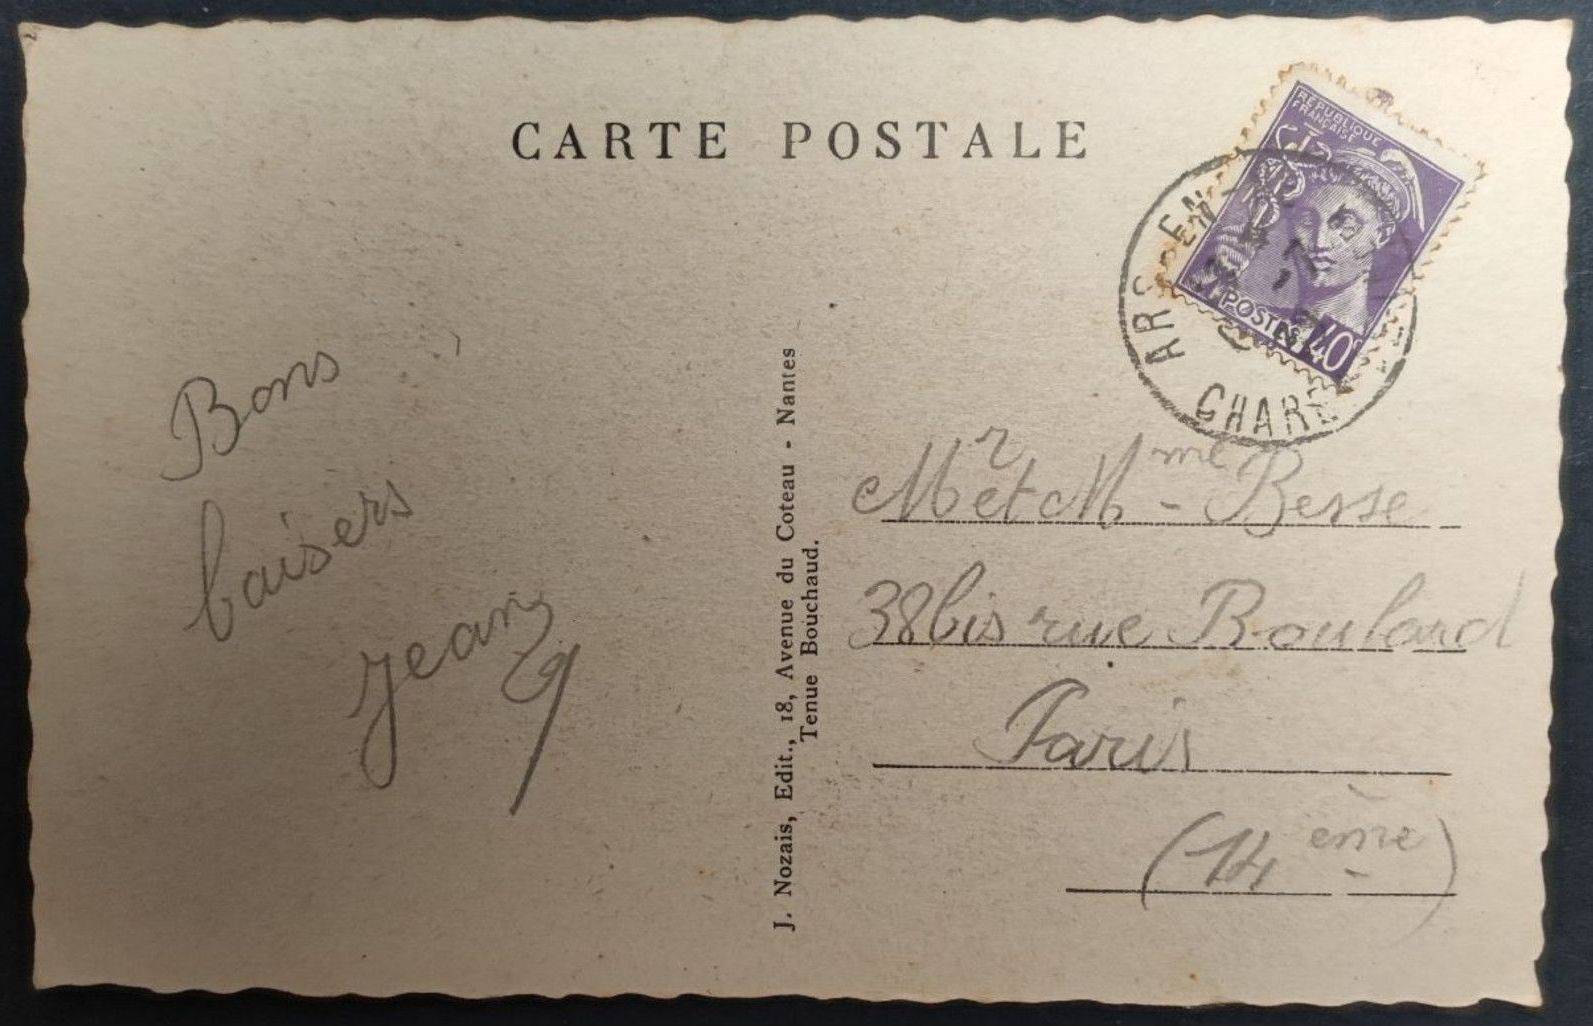 CARTE POSTALE
RÉPUBLIQUE
FRANÇAISE
POSTES 40c
ARS EN
CHARE
Bons
baisers
Jean
J. Nozais, Edit., 18, Avenue du Coteau - Nantes
Tenue Bouchaud.
Mr et Mme - Besse
38bis rue Boulard
Paris
(14ème)